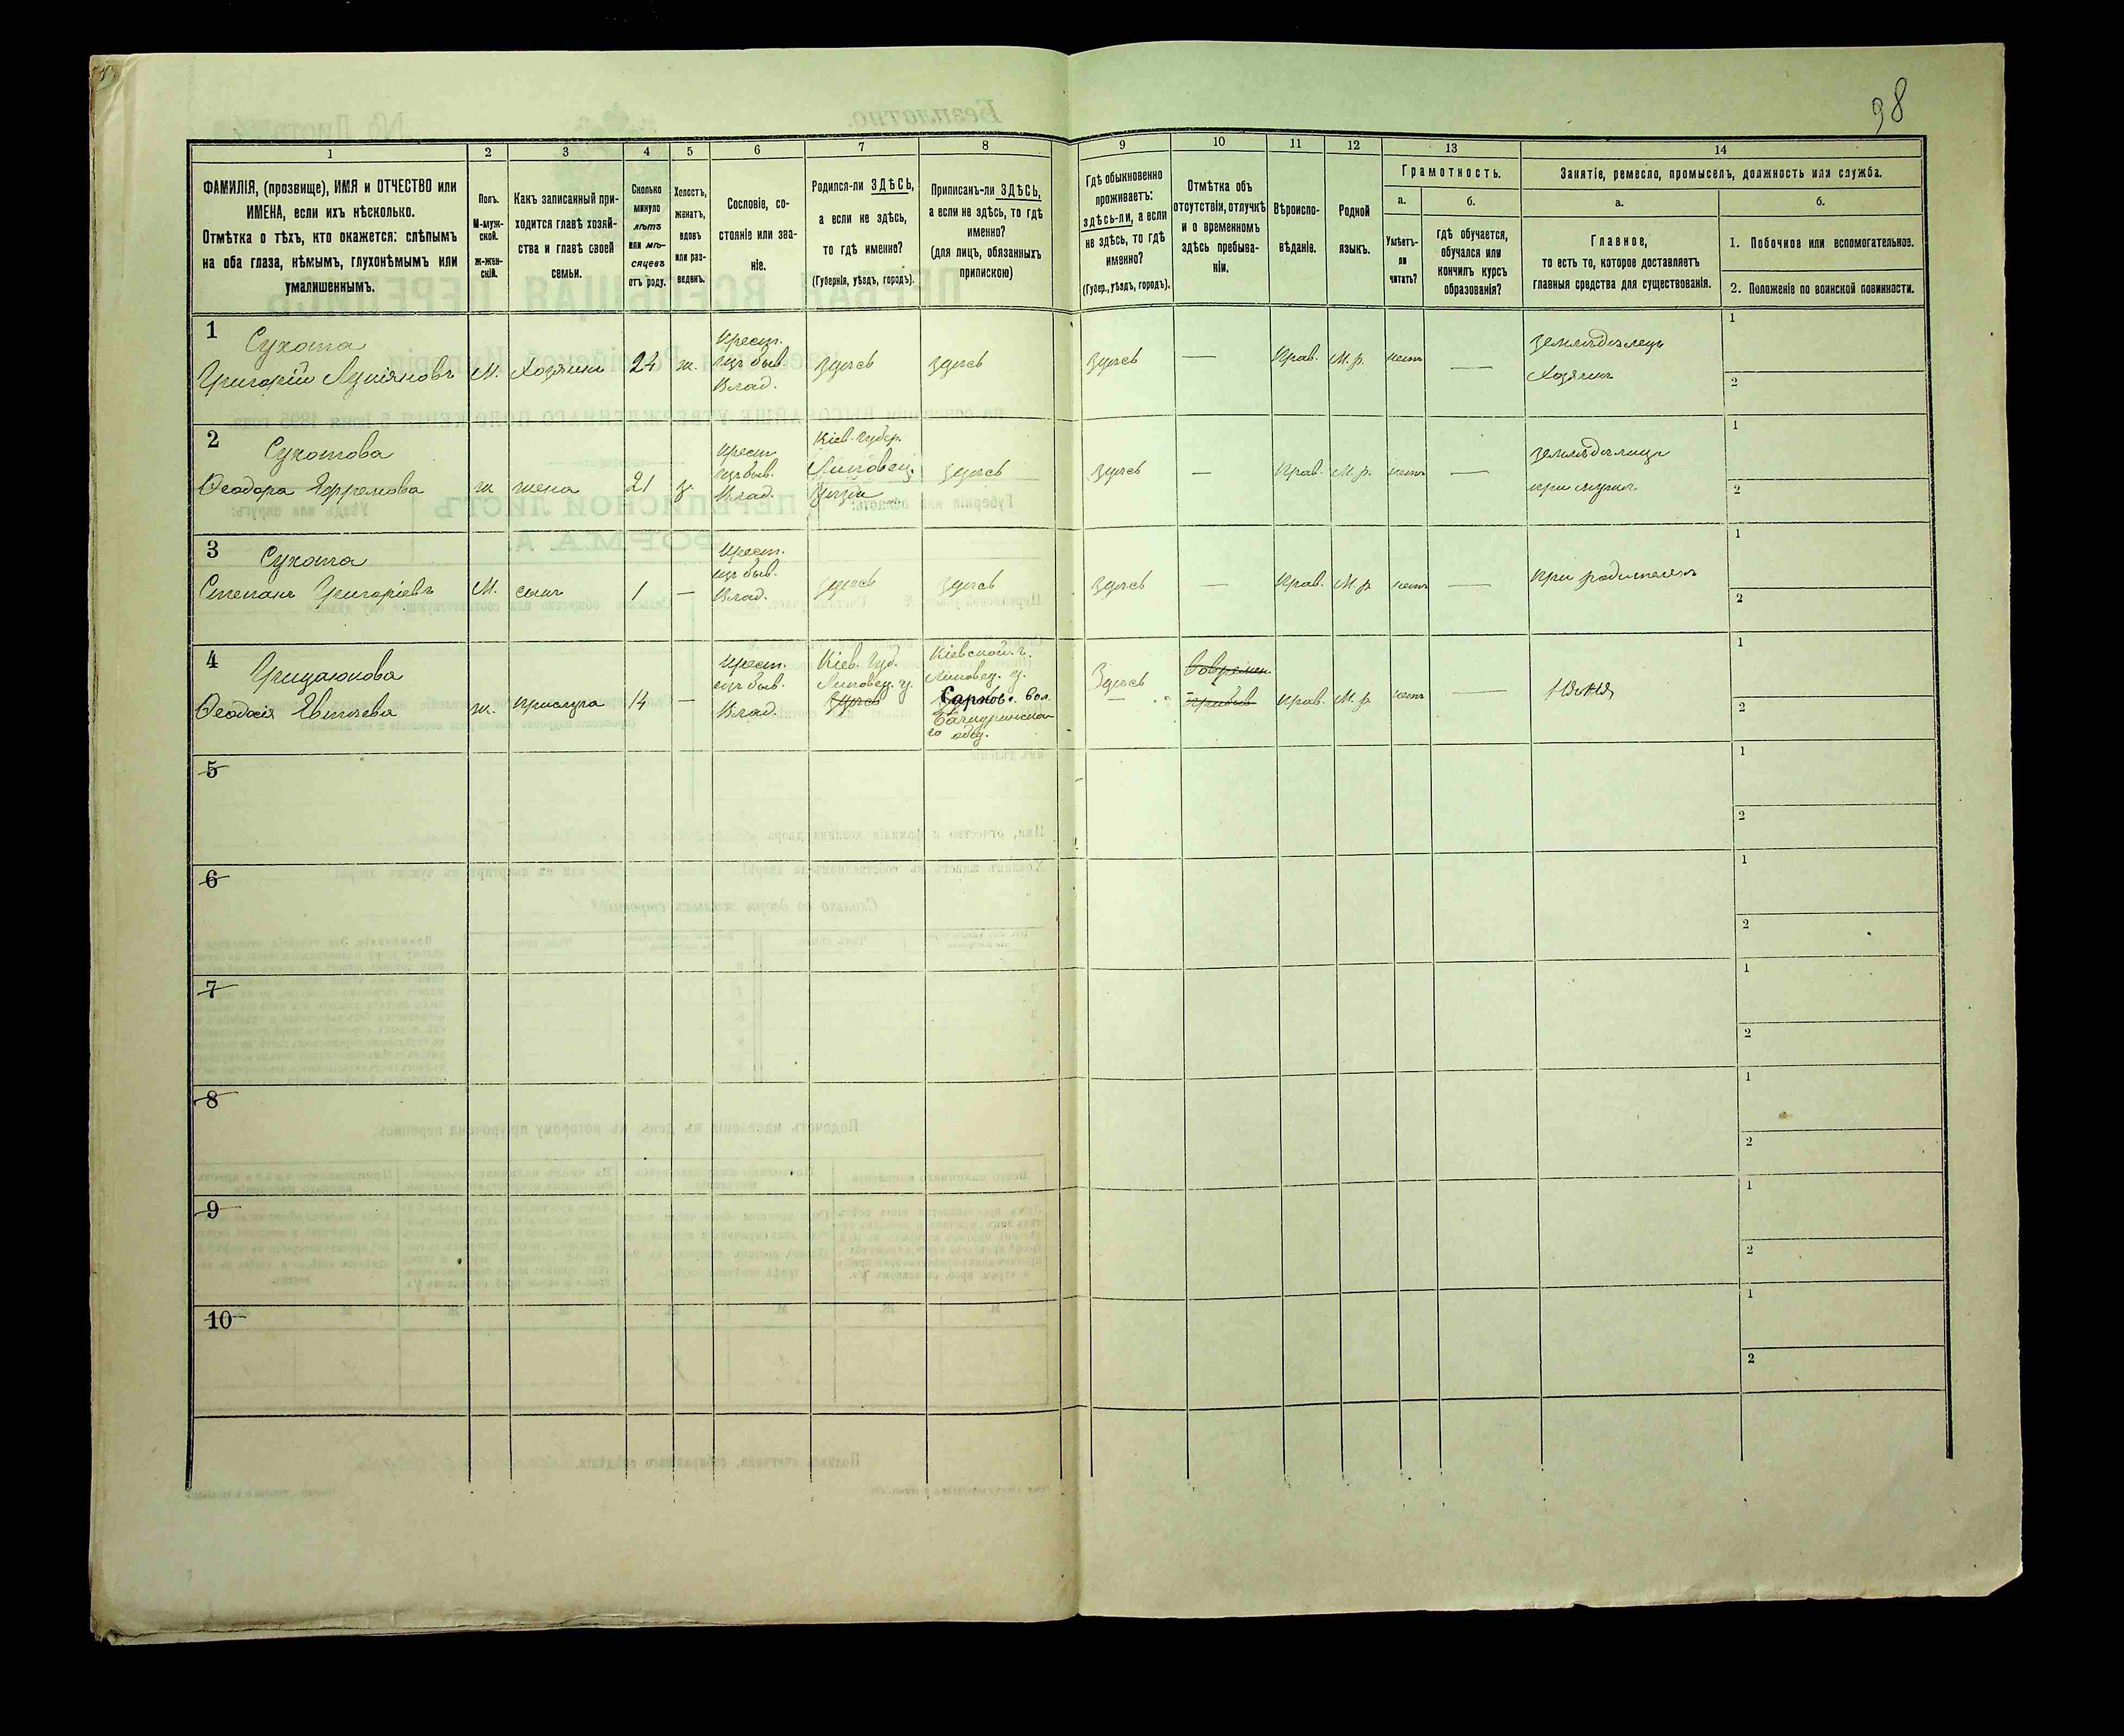 98
1
2
3
4
5
6
7
8
9
10
11
12
13
14
ФАМИЛІЯ, (прозвище), ИМЯ и ОТЧЕСТВО или
ИМЕНА, если ихъ нѣсколько.
Отмѣтка о тѣхъ, кто окажется: слѣпымъ
на оба глаза, нѣмымъ, глухонѣмымъ или
умалишеннымъ.
Полъ.
М-муж-
ской.
Ж-жен-
скій.
Какъ записанный при-
ходится главѣ хозяй-
ства и главѣ своей
семьи.
Сколько
минуло
лѣтъ
или мѣ-
сяцевъ
отъ роду.
Холостъ,
женатъ,
вдовъ
или раз-
веденъ.
Сословіе, со-
стояніе или зва-
ніе.
Родился-ли ЗДѢСЬ,
а если не здѣсь,
то гдѣ именно?
(Губернія, уѣздъ, городъ).
Приписанъ-ли ЗДѢСЬ,
а если не здѣсь, то гдѣ
именно?
(для лицъ, обязанныхъ
припискою)
Гдѣ обыкновенно
проживаетъ:
здѣсь-ли, а если
не здѣсь, то гдѣ
именно?
(Губер., уѣздъ, городъ).
Отмѣтка объ
отсутствіи, отлучкѣ
и о временномъ
здѣсь пребыва-
ніи.
Вѣроиспо-
вѣданіе.
Родной
языкъ.
Грамотность.
а.
Умѣетъ-
ли
читать?
б.
гдѣ обучается,
обучался или
кончилъ курсъ
образованія?
Занятіе, ремесло, промыселъ, должность или служба.
а.
Главное,
то есть то, которое доставляетъ
главныя средства для существованія.
б.
1. Побочное или вспомогательное.
2. Положеніе по воинской повинности.
1
Сухота
Григорій Лукіяновъ
М.
Хозяинъ
24
ж.
Крест.
изъ быв.
Влад.
Здѣсь
Здѣсь
Здѣсь
—
Прав.
М. р.
нетъ
—
Земледѣлецъ
Хозяинъ
1
2
2
Сухотова
Ѳеодора Ефремова
ж
жена
21
з.
Крест
изъ быв.
Влад.
Кіев. Губер.
Липовец.
Уѣзда
Здѣсь
Здѣсь
—
Прав.
М. р.
нетъ
—
при мужѣ
1
2
3
Сухота
Степанъ Григоріевъ
М.
сынъ
1
—
Крест.
изъ быв.
Влад.
Здѣсь
Здѣсь
Здѣсь
—
Прав.
М. р
нетъ
—
При родителяхъ
1
2
4
Ѳеодосія
ж.
Прислуга
14
—
Крест.
изъ быв.
Влад.
Кіев. Губ.
Липовец. у.
Здѣсь
Кіевской г.
Липовец. у.
вол.
Здѣсь
Прав.
М. р
нетъ
—
Няня
1
2
5
1
2
6
1
2
7
1
2
8
1
2
9
1
2
10
1
2